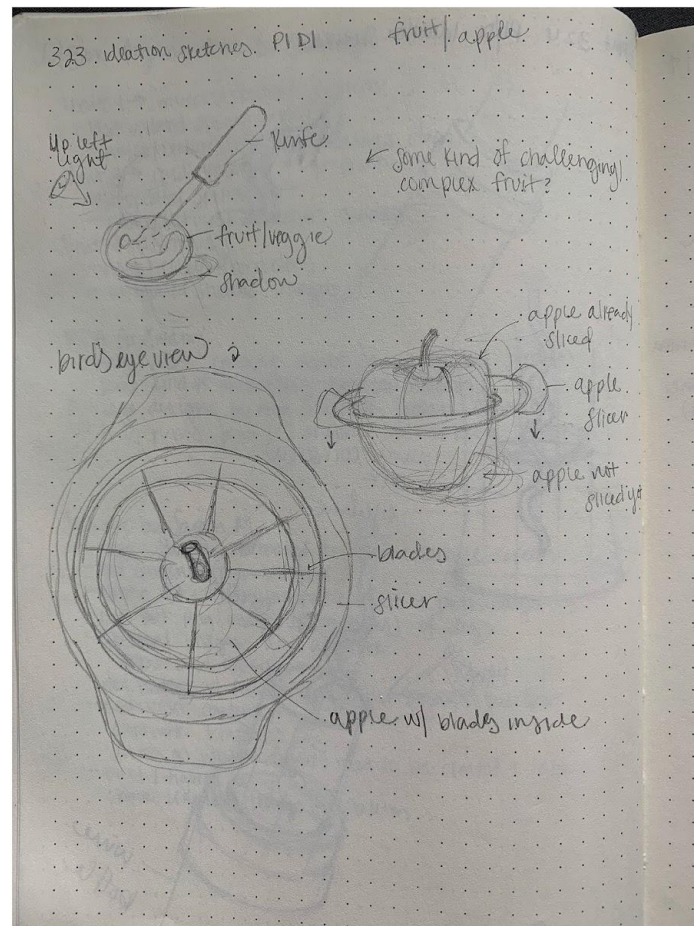 323. ideation sketches. P1D1
fruit/apple
Up left
light
knife
← some kind of challenging/
complex fruit?
fruit/veggie
shadow
birds eye view
apple already
sliced
apple
slicer
apple not
sliced yet
blades
slicer
apple w/ blades inside